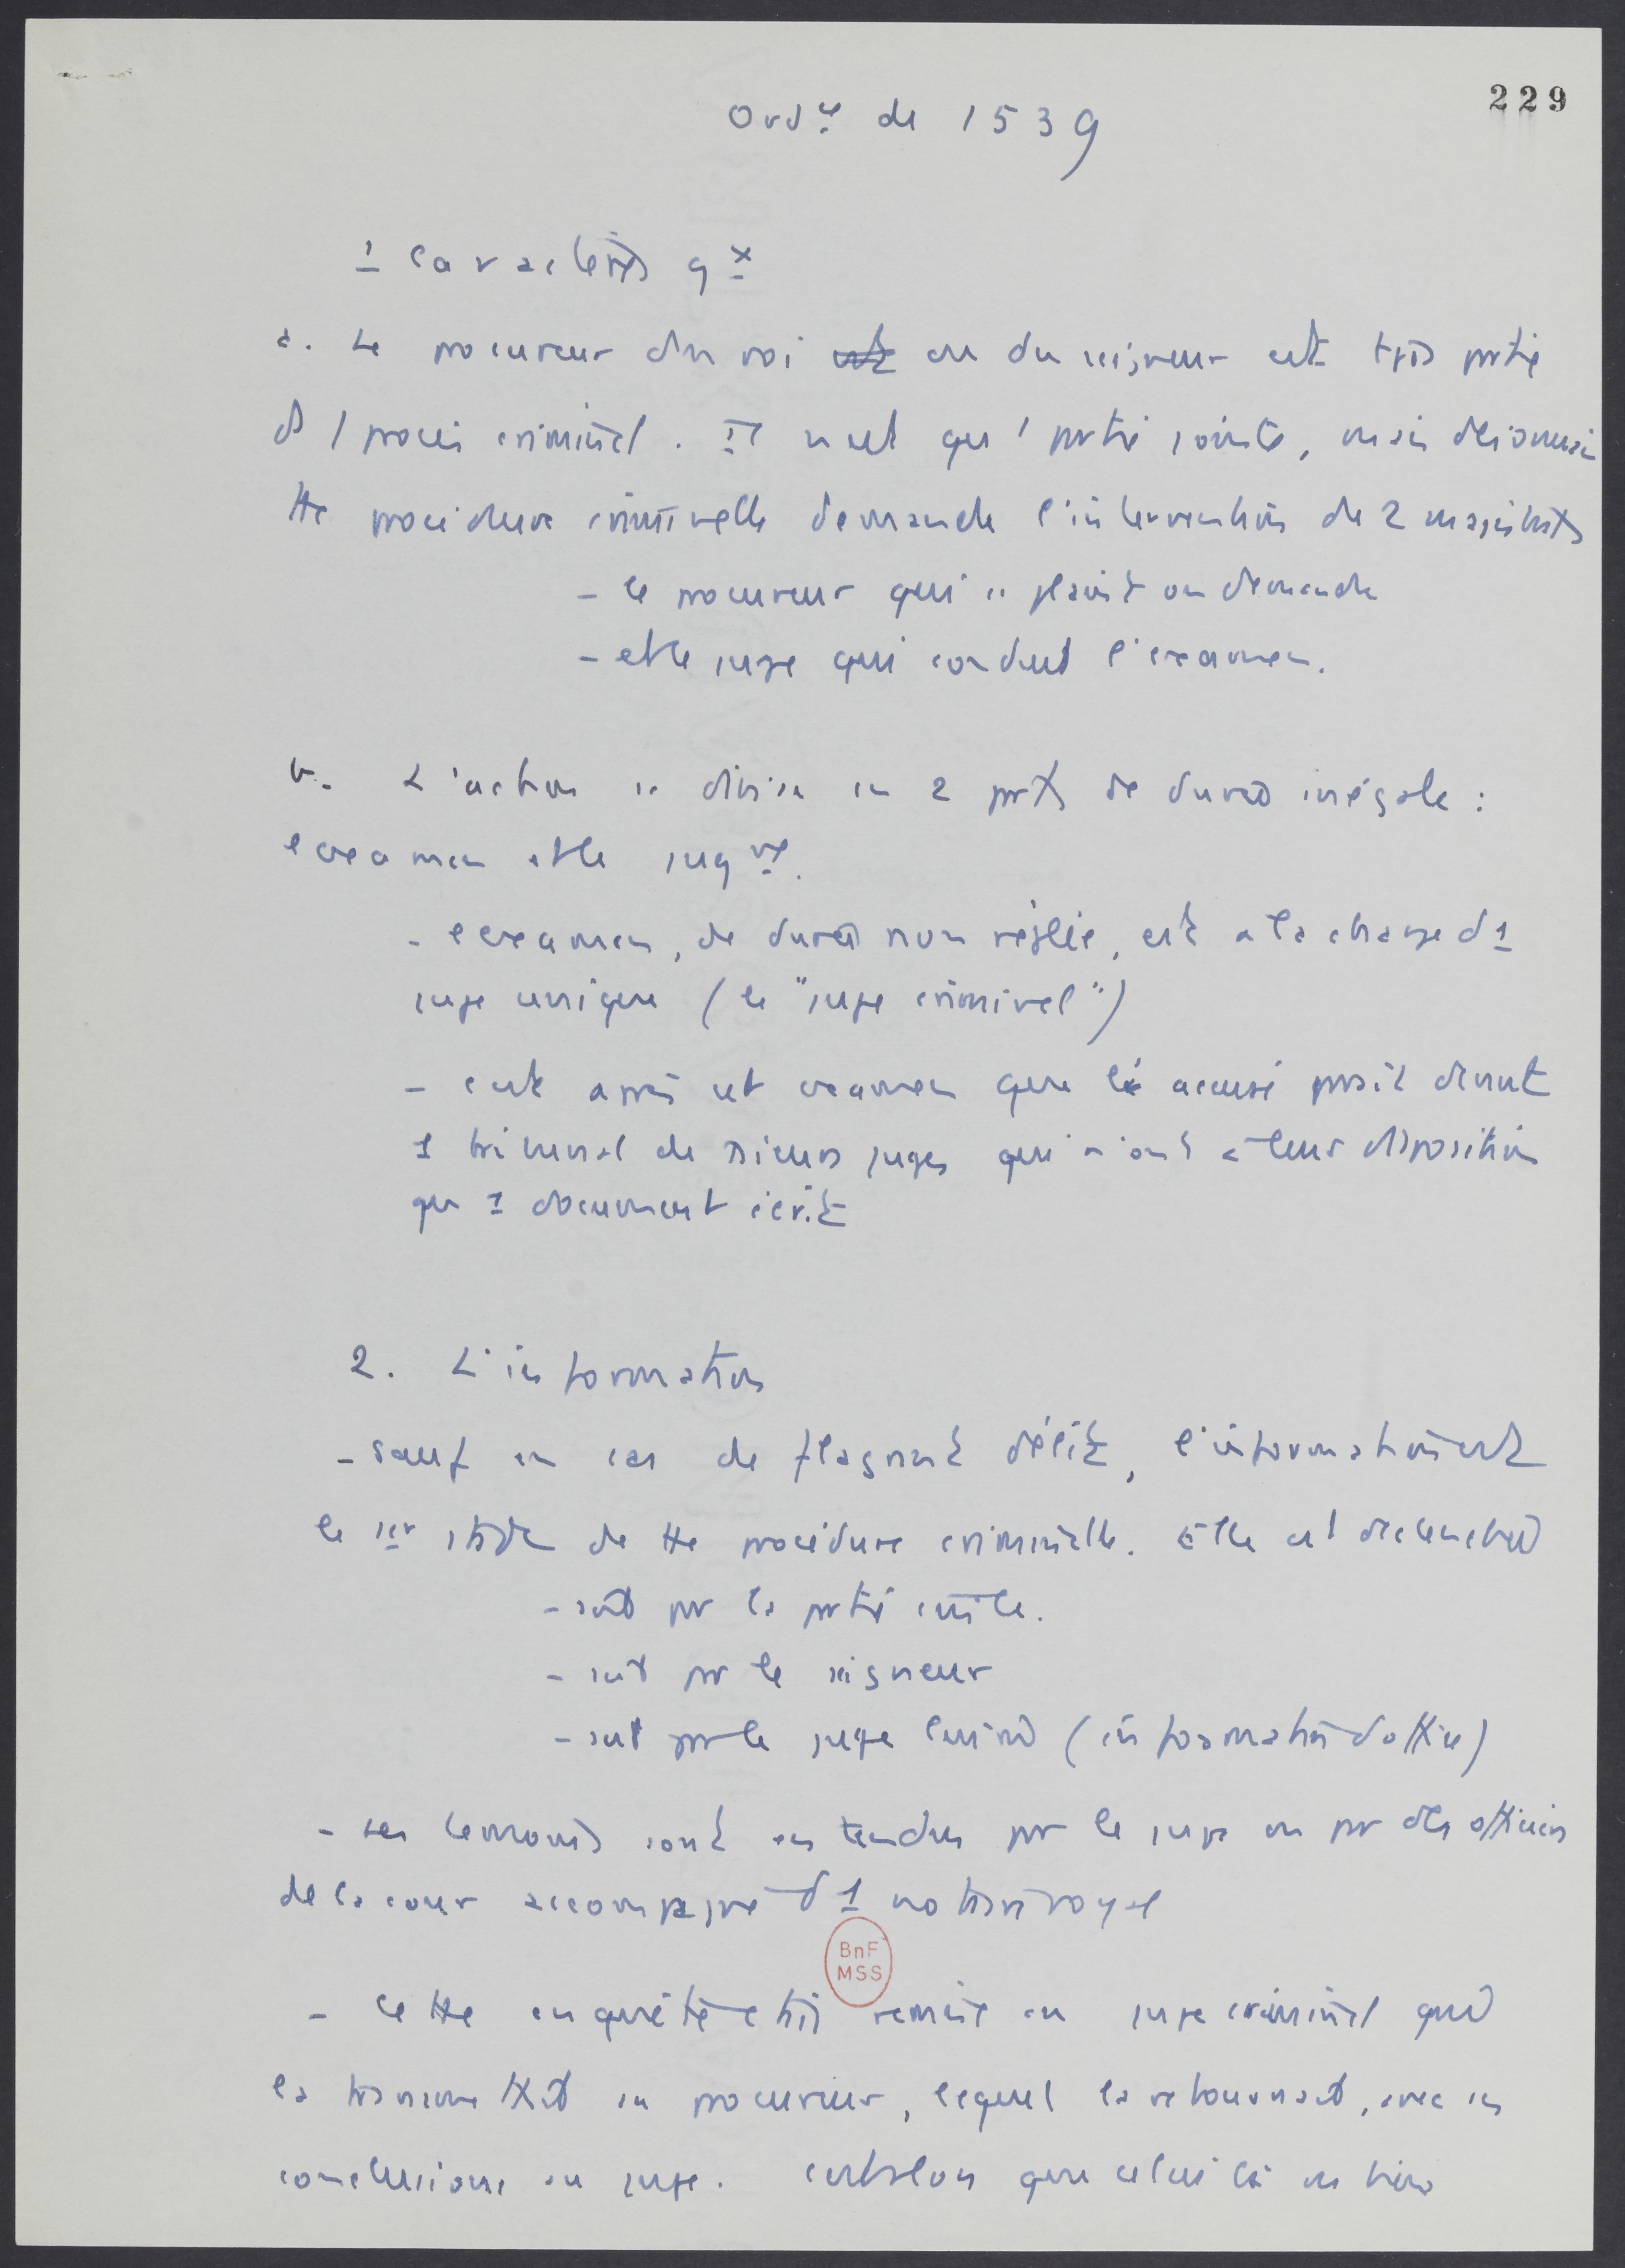 229
Ordce de 1539
1 Caractères gx
a. Le procureur du roi ou du seigneur est tjrs partie
ds 1 procès criminel. Il n'est qu'1 partie jointe, mais désormais
tte procédure criminelle demande l'intervention de 2 magistrats
- le procureur qui se plaint ou demande
- et le juge qui conduit l'examen.
b. L'action se divise en 2 parts de durée inégale :
l'examen et le jugmt.
- l'examen, de durée non réglée, est à la charge d'1
juge unique (le "juge criminel")
- c'est après cet examen que l'accusé passait devant
1 tribunal de plusieurs juges qui n'ont à leur disposition
qu'1 document écrit
2. L'information
- Sauf en cas de flagrant délit, l'information est
le 1er stade de tte procédure criminelle. Elle est déclenchée
- soit par la partie civile.
- soit par le seigneur
- soit par le juge lui-même (information d'office)
- les témoins sont entendus par le juge ou par des officiers
de la cour accompagné d'1 notaire royal
- Cette enquête était remise au juge criminel qui
la transmettait au procureur, lequel la retournait, avec ses
conclusions au juge. C'est alors que celui-là
BnF
MSS